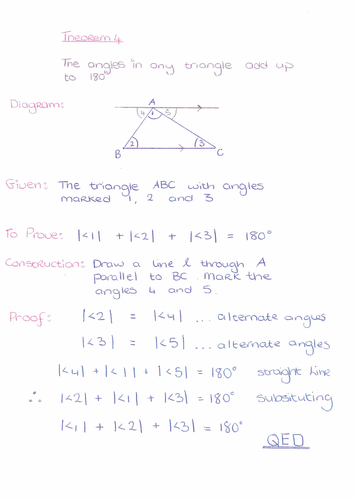 Theorem 4
The angles in any triangle add up
to 180°
Diagram:
A
4 1 5
2 3
B C
Given: The triangle ABC with angles
marked 1, 2 and 3
To Prove: |<1| + |<2| + |<3| = 180°
Construction: Draw a line l through A
parallel to BC. Mark the
angles 4 and 5.
Proof: |<2| = |<4| ... alternate angles
|<3| = |<5| ... alternate angles
|<4| + |<1| + |<5| = 180° straight line
∴ |<2| + |<1| + |<3| = 180° subsituting
|<1| + |<2| + |<3| = 180°
QED